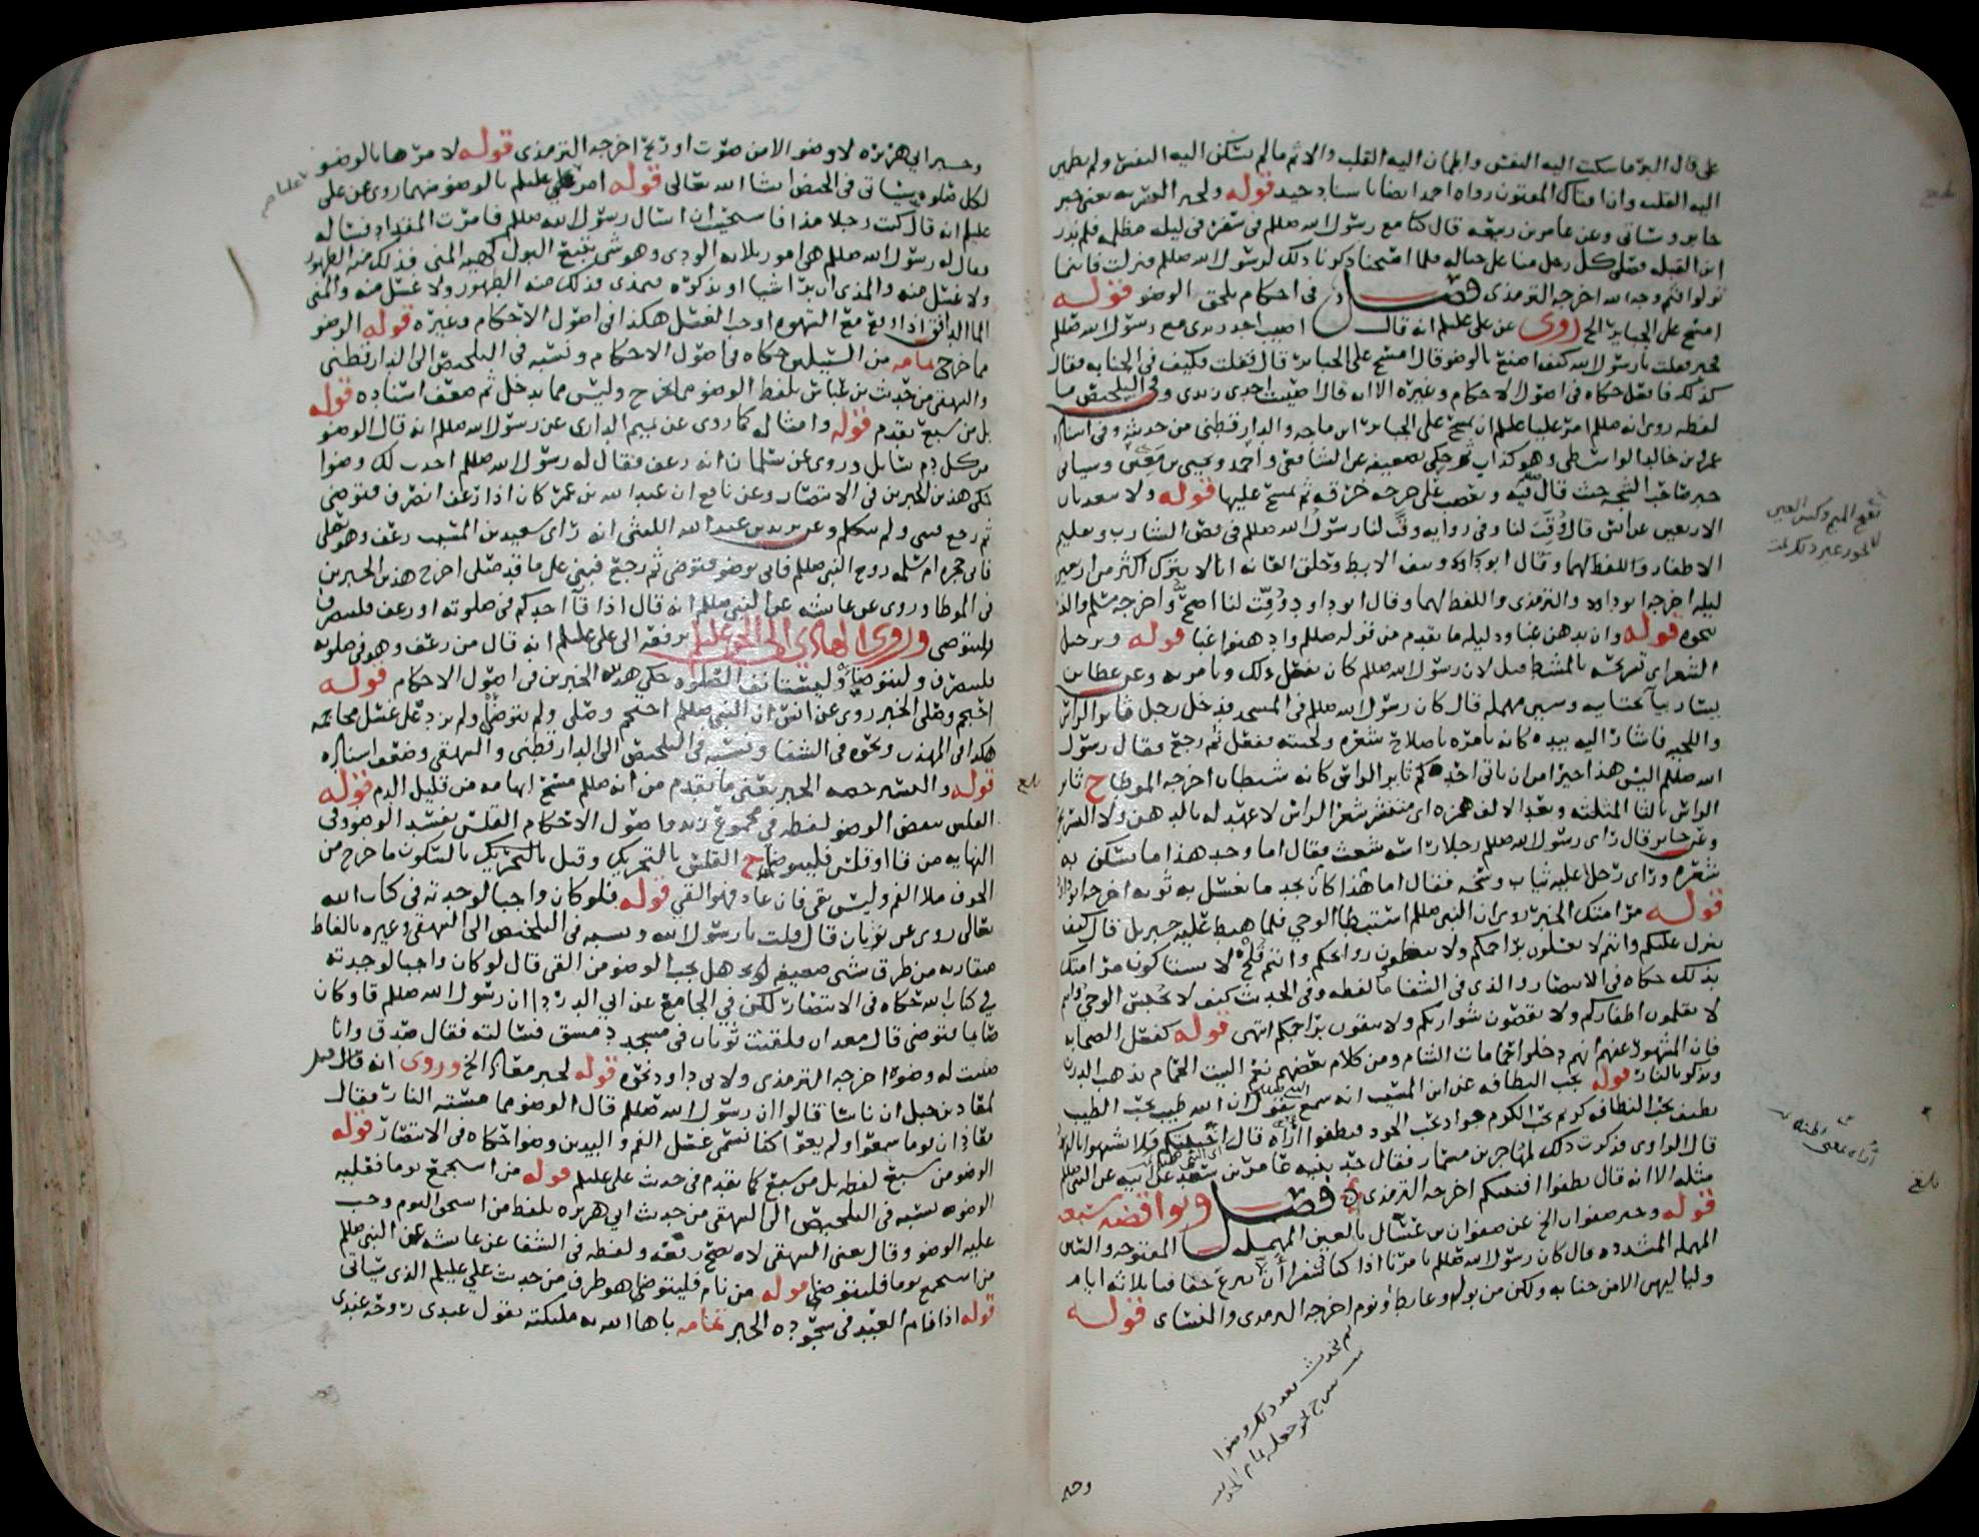 على قال البر ما سكنت اليه النفس واطمان اليه القلب والاثم ما لم تسكن اليه النفس ولم يطمئن
اليه القلب وان افتاك المفتون رواه احمد ايضا باسناد جيد قوله ولخبر السريه يعني خبر
جابر وسياتي وعن عامر بن ربيعه قال كنا مع رسول الله صللم في سفره في ليله مظلمه فلم ندر
اين القبله فصلى كل رجل منا على حياله فلما اصبحنا ذكرنا ذلك لرسول الله صللم فنزلت فاينما
تولوا فثم وجه الله اخرجه الترمذي فصل في احكام تلحق الوضو قوله
امسح على الجباير الخ روى عن علي عليلم انه قال اصيب احد زندي مع رسول الله صللم
فجبر فقلت يا رسول الله كيف اصنع بالوضو قال امسح على الجباير قال قلت فكيف في الجنابه فقال
كذلك فافعل حكاه في اصول الاحكام وغيره الا انه قال اصيب احدى زندي وفي التلخيص ما
لفظه روي انه صللم امر عليا عليلم ان يمسح على الجباير ابن ماجه والدارقطني من حديثه وفي اسناده
عمر بن خالد الواسطي وهو كذاب ثم حكى تضعيفه عن الشافعي واحمد ويحيى بن معين وسياتي
خبر صاحب الشجه حيث قال فيه ويعصب على جرحه خرقه ثم يمسح عليها قوله ولا يتعديان
الاربعين عن انس قال وقت لنا وفي روايه وقت لنا رسول الله صللم في قص الشارب وتقليم
الاظفار واللفظ لهما وقال ابو داود ونتف الابط وحلق العانه ان لا يترك اكثر من اربعين
ليله اخرجه ابو داود والترمذي واللفظ لهما وقال ابو داود وقت لنا اصح واخرجه مسلم والنسائي
نحوه قوله وان يدهن غبا ودليله ما تقدم من قوله صللم وادهنوا غبا قوله وترجيل
الشعر اي تسريحه بالمشط قيل لان رسول الله صللم كان يفعل ذلك ويامر به وعن عطا بن
يسار بيا تحتانيه وسين مهمله قال كان رسول الله صللم في المسجد فدخل رجل ثاير الراس
واللحيه فاشار اليه بيده كانه يامره باصلاح شعره ولحيته ففعل ثم رجع فقال رسول
الله صللم اليس هذا خيرا من ان ياتي احدكم ثاير الراس كانه شيطان اخرجه الموطا ح ثاير
الراس بالثا المثلثه وبعد الالف همزه اي منتشر شعر الراس لا عهد له بالدهن ولا التسريح
وعن جابر قال راى رسول الله صللم رجلا راسه شعث فقال اما وجد هذا ما يسكن به
شعره وراى رجلا عليه ثياب وسخه فقال اما هذا كان يجد ما يغسل به ثوبه اخرجه ابو داود
قوله مر امتك الخبر روي ان النبي صللم استبطا الوحي فلما هبط عليه جبريل قال كيف
ننزل عليكم وانتم لا تغسلون براجمكم ولا تنظفون رواجبكم وانتم قلح لا تستاكون مر امتك
بذلك حكاه في الانتصار والذي في الشفا ما لفظه وفي الحديث كيف لا يحتبس الوحي وانتم
لا تقلمون اظفاركم ولا تقصون شواربكم ولا تنقون براجمكم انتهى قوله كفعل الصحابه
فان المشهور عنهم انهم دخلوا حمامات الشام ومن كلام بعضهم نعم البيت الحمام يذهب الدرن
ويذكر بالنار قوله يحب النظافه عن ابن المسيب انه سمع يقول ان الله طيب يحب الطيب
نظيف يحب النظافه كريم يحب الكرم جواد يحب الجود فنظفوا اراه قال افنيتكم ولا تشبهوا باليهود
قال الراوي فذكرت ذلك لمهاجر بن مسمار فقال حدثنيه عامر بن سعد عن ابيه عن النبي صللم
مثله الا انه قال نظفوا افنيتكم اخرجه الترمذي فصل ونواقضه سبعه
قوله وخبر صفوان الخ عن صفوان بن عسال بالعين المهمله المفتوحه والسين
المهمله المشدده قال كان رسول الله صللم يامرنا اذا كنا سفرا ان لا ننزع خفافنا ثلاثه ايام
ولياليهن الا من جنابه ولكن من بول وغايط ونوم اخرجه الترمذي والنسائي قوله
وخبر
وخبر ابي هريره لا وضو الا من صوت او ريح اخرجه الترمذي قوله لامرها بالوضو
لكل صلوه سياتي في الحيض انشا الله تعالى قوله امر علي عليلم بالوضو منهما روي عن علي
عليلم انه قال كنت رجلا مذا فاستحييت ان اسال رسول الله صللم فامرت المقداد فساله
فقال له رسول الله صللم هي امور ثلاثه الودي وهو شي يتبع البول كهيه المني فذلك منه الطهور
ولا غسل منه والمذي ان ترى شيا او تذكره فتمذي فذلك منه الطهور ولا غسل منه والمني
الما الدافق اذا وقع مع الشهوه اوجب الغسل هكذا في اصول الاحكام وغيره قوله الوضو
مما خرج تمامه من السبيلين حكاه في اصول الاحكام ونسبه في التلخيص الى الدارقطني
والبيهقي من حديث بن عباس بلفظ الوضو مما يخرج وليس مما يدخل ثم ضعف اسناده قوله
بل من سبع تقدم قوله وامثاله كما روي عن تميم الداري عن رسول الله صللم انه قال الوضو
من كل دم سايل وروي عن سلمان انه رعف فقال له رسول الله صللم احدث لك وضوا
حكى هذين الخبرين في الانتصار وعن نافع ان عبد الله بن عمر كان اذا رعف انصرف فتوضى
ثم رجع فبنى ولم يتكلم وعن يزيد بن عبد الله الليثي انه راى سعيد بن المسيب رعف وهو يصلي
فاتى حجره ام سلمه زوج النبي صللم فاتي بوضو فتوضى ثم رجع فبنى على ما قد صلى اخرج هذين الخبرين
في الموطا وروي عن عايشه عن النبي صللم انه قال اذا قا احدكم في صلوته او رعف فلينصرف
وليتوضى وروى الهادي الى الحق عليلم يرفعه الى علي عليلم انه قال من رعف وهو في صلوته
فلينصرف وليتوضا وليستانف الصلوه حكى هذين الخبرين في اصول الاحكام قوله
احتجم وصلى الخبر روي عن انس ان النبي صللم احتجم وصلى ولم يتوضا ولم يزد على غسل محاجمه
هكذا في المهذب ونحوه في الشفا ونسبه في التلخيص الى الدارقطني والبيهقي وضعف اسناده
قوله والعشر الخبر يعني ما تقدم من انه صللم مسح ابهامه من قليل الدم قوله
القلس ينقض الوضو لفظه في مجموع زيد واصول الاحكام القلس يفسد الوضو وفي
النهايه من قا او قلس فليتوضا ح القلس بالتحريك وقيل بالسكون ما خرج من
الجوف ملا الفم وليس بقي فان عاد فهو القي قوله فلو كان واجبا لوجدته في كتاب الله
تعالى روي عن ثوبان قال قلت يا رسول الله ونسبه في التلخيص الى البيهقي وغيره بالفاظ
متقاربه من طرق شتى ضعيفه هل يجب الوضو من القي قال لو كان واجبا لوجدته
في كتاب الله حكاه في الانتصار لكن في الجامع عن ابي الدردا ان رسول الله صللم قا وكان
صايما فتوضى قال معدان فلقيت ثوبان في مسجد دمشق فسالته فقال صدق وانا
صببت له وضوه اخرجه الترمذي ولابي داود نحوه قوله لخبر معاذ الخ وروى انه قال قيل
لمعاذ بن جبل ان ناسا قالوا ان رسول الله صللم قال الوضو مما مسته النار فقال
معاذ ان قوما سمعوا ولم يعوا كنا نسمي غسل الفم واليدين وضوا حكاه في الانتصار قوله
الوضو من سبع لفظه بل من سبع كما تقدم في حديث علي عليلم قوله من استجمع نوما فعليه
الوضوء نسبه في التلخيص الى البيهقي من حديث ابي هريره بلفظ من استحق النوم وجب
عليه الوضو وقال يعني البيهقي لا يصح رفعه ولفظه في الشفا عن عايشه عن النبي صللم
من استجمع نوما فليتوضا قوله من نام فليتوضا هو طرف من حديث علي عليلم الذي سياتي
قوله اذا نام العبد في سجوده الخبر تمامه باها الله به مليكته يقول عبدي روحه عندي